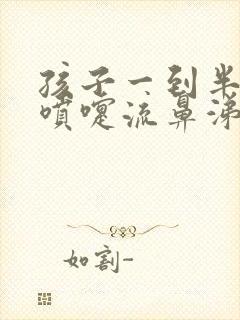 孩子一到半
喷嚏流鼻涕
如割-